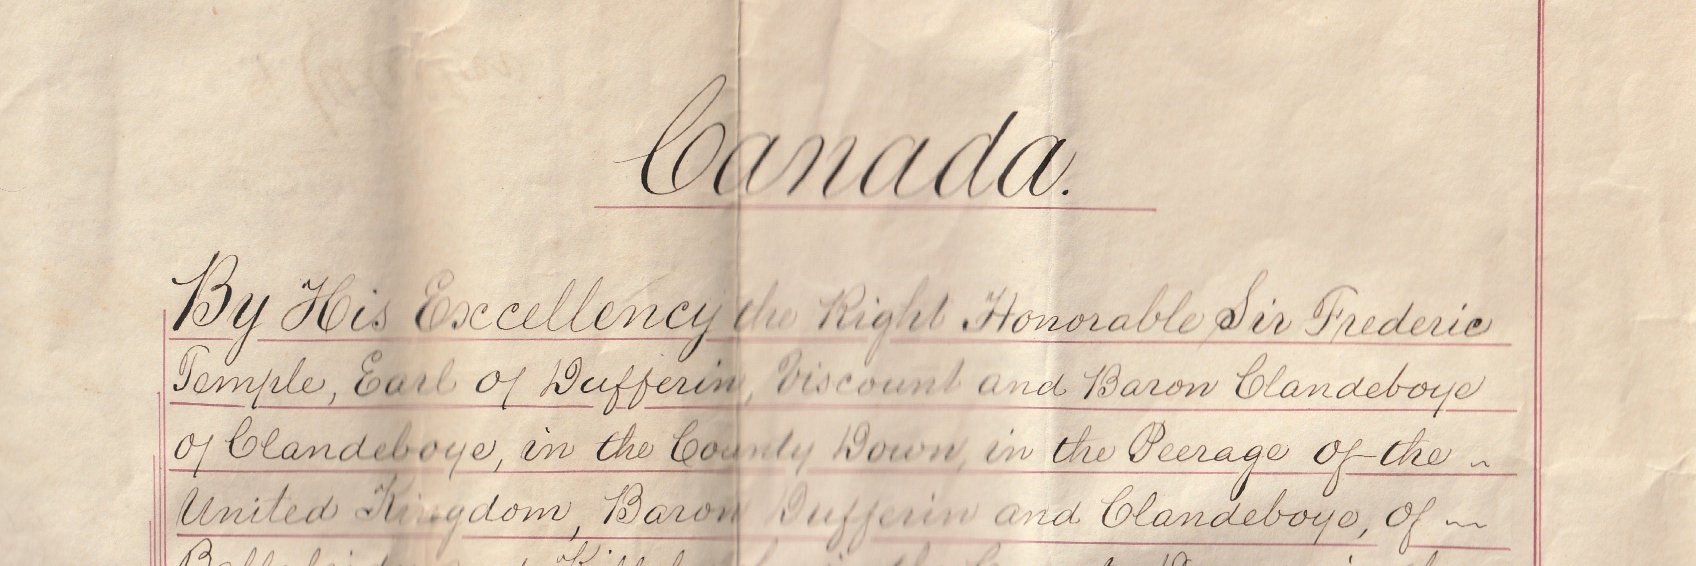 Canada.
By His Excellency the Right Honorable Sir Frederic
Temple, Earl of Dufferin, Viscount and Baron Clandeboye
of Clandeboye, in the County Down, in the Peerage of the ~
United Kingdom, Baron Dufferin and Clandeboye, of ~~